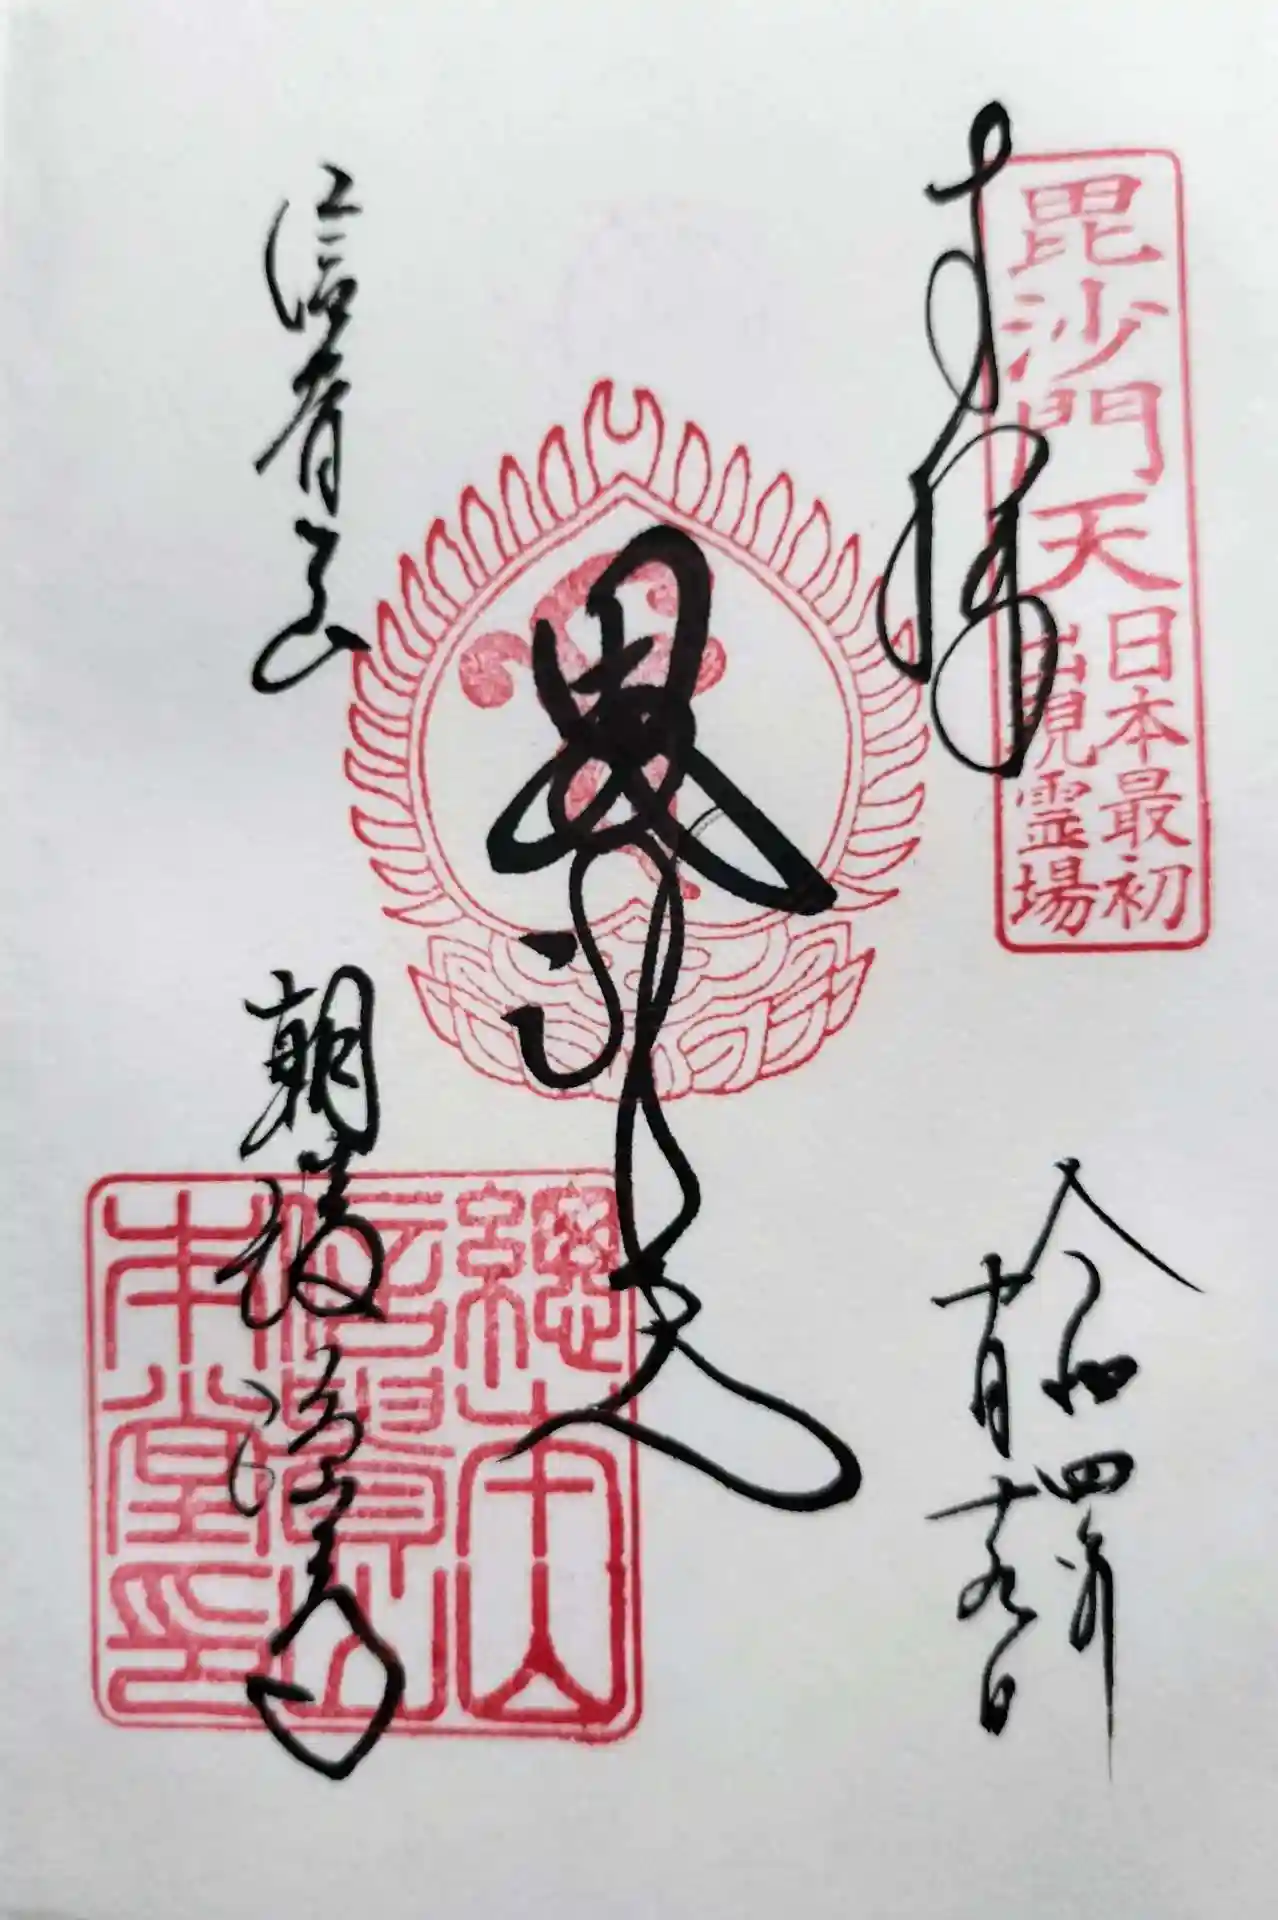 毘沙門天
日本最初
出現霊場
奉拝
令和四年
十月十九日
毘沙門天
信貴山
朝護孫子寺
總本山
信貴山
本堂印